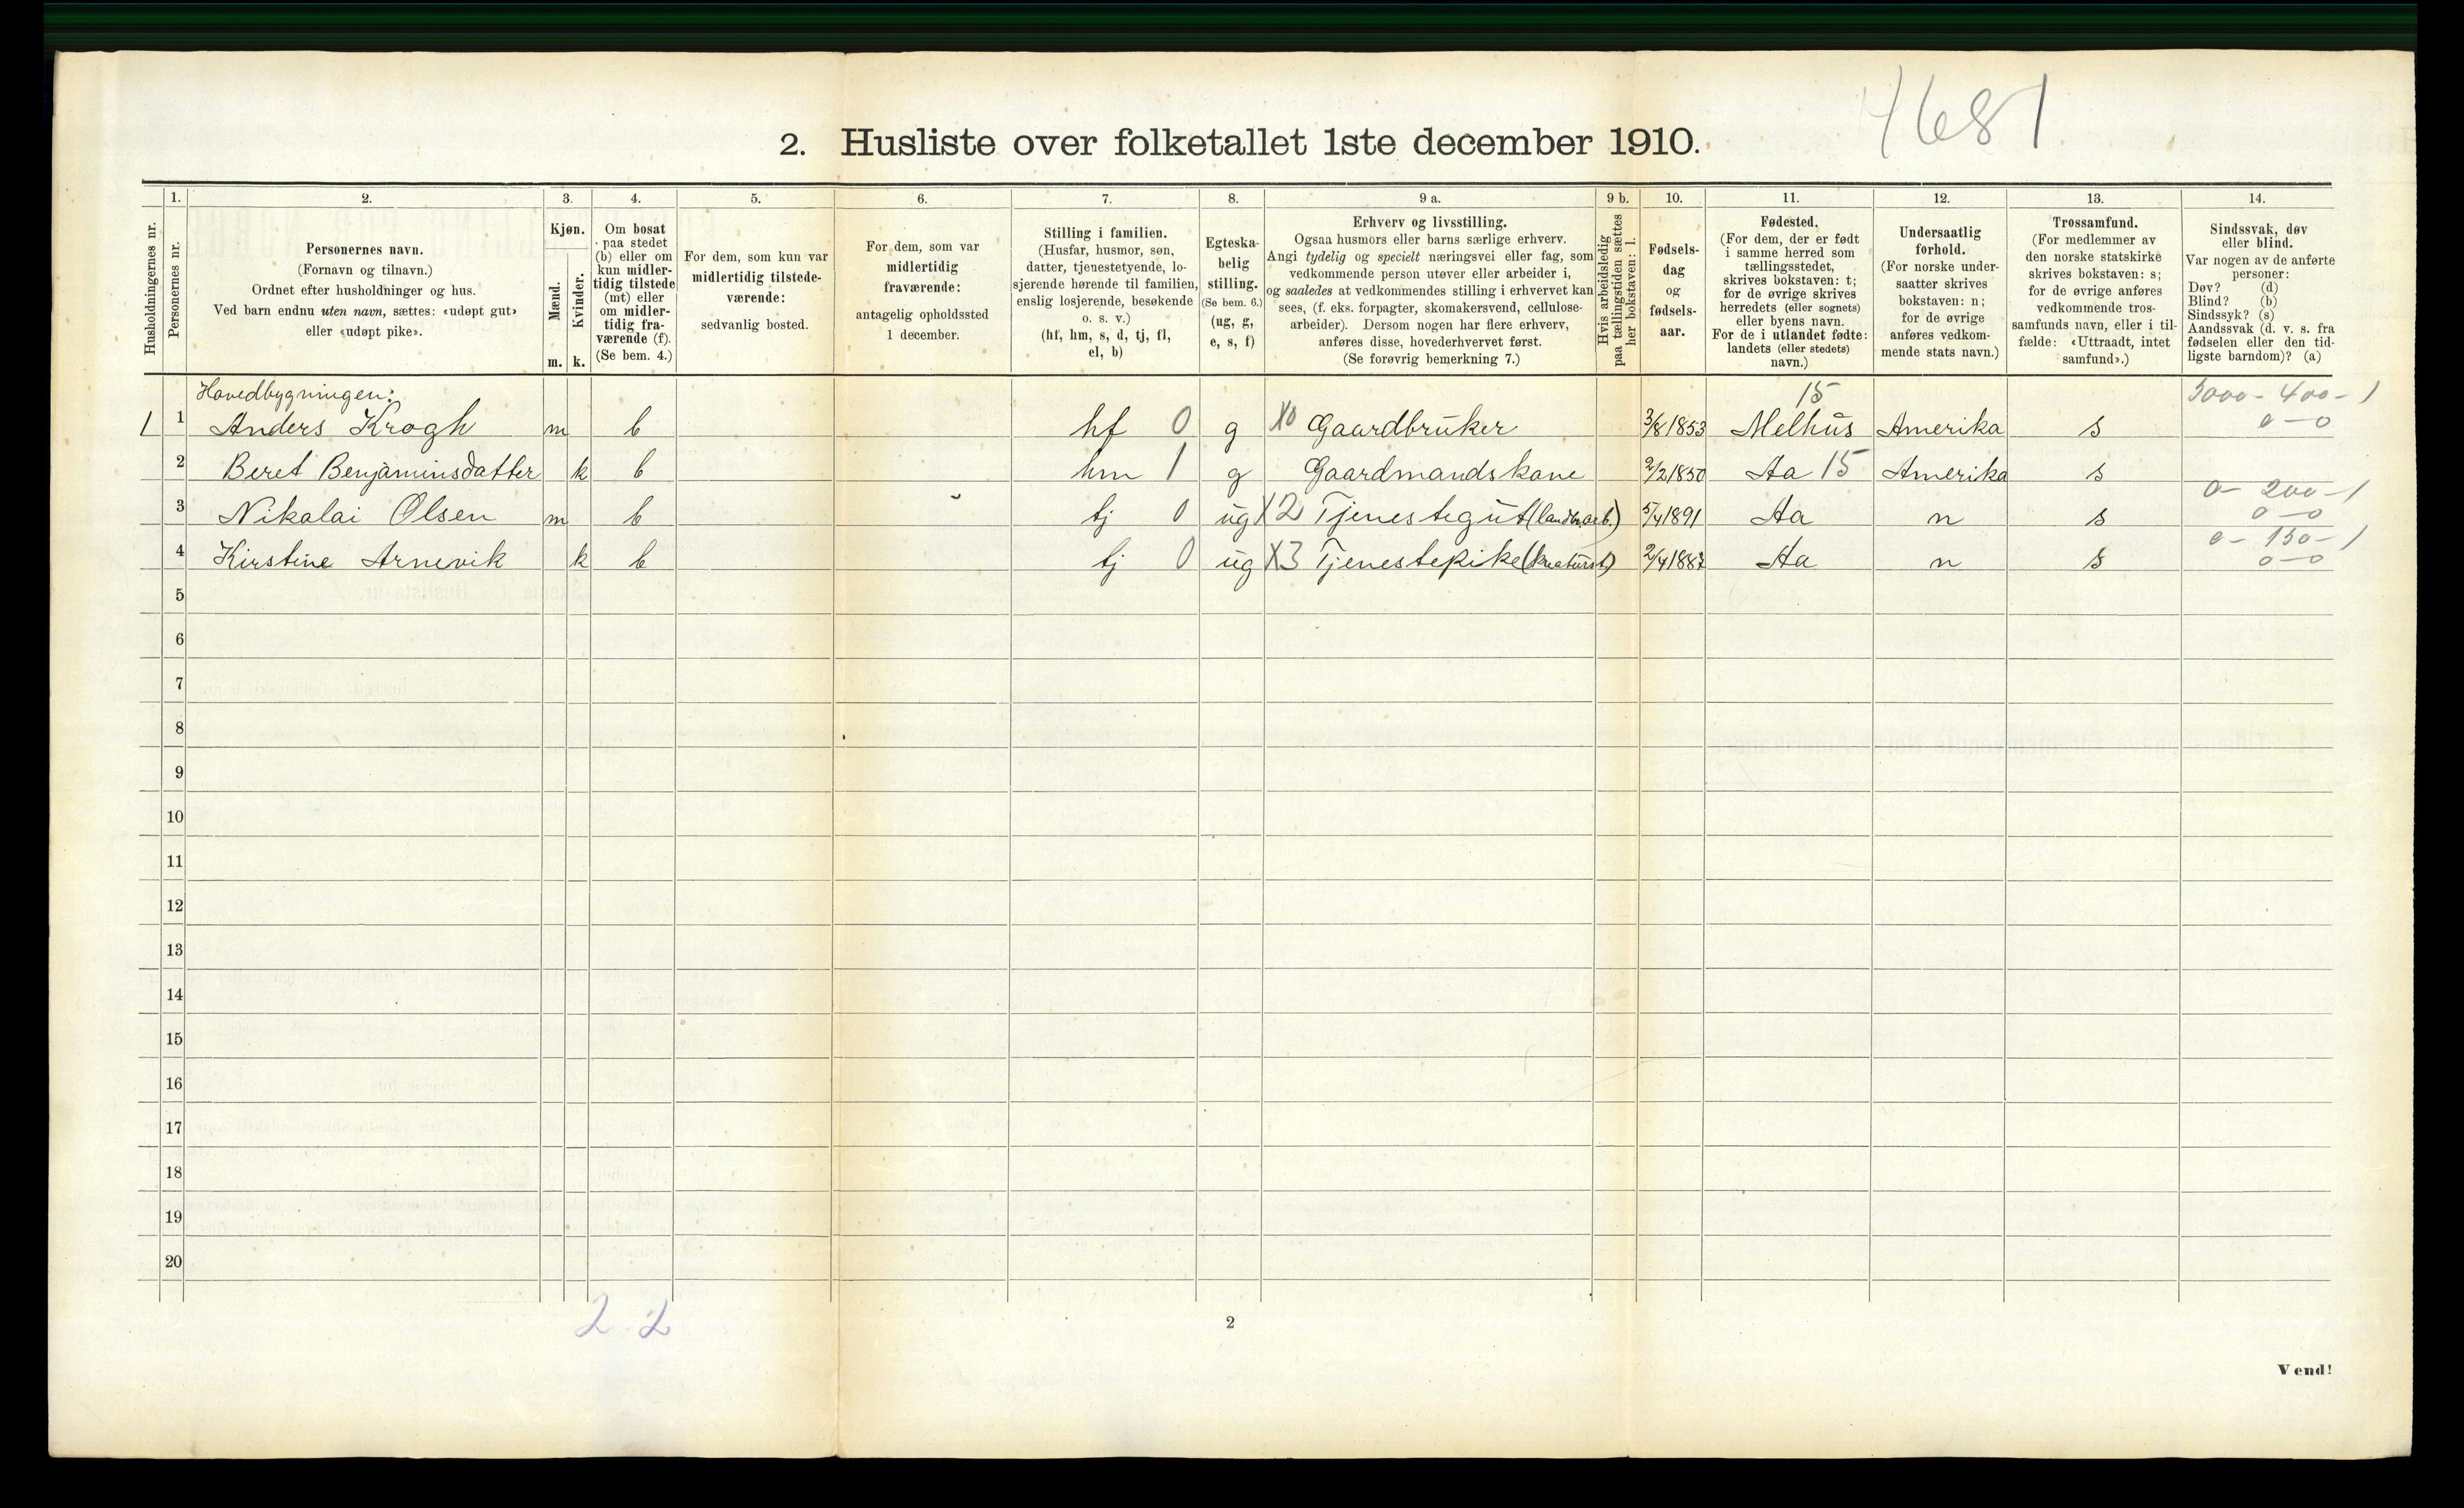 4681
2. Husliste over folketallet 1ste december 1910.
Husholdningernes nr.
1.
Personernes nr.
2.
Personernes navn.
(Fornavn og tilnavn.)
Ordnet efter husholdninger og hus.
Ved barn endnu uten navn, sættes: «udøpt gut»
eller «udøpt pike».
3.
Kjøn.
Mænd.
Kvinder.
m. k.
4.
Om bosat
paa stedet
(b) eller om
kun midler-
tidig tilstede
(mt) eller
om midler-
tidig fra-
værende (f).
(Se bem. 4.)
5.
For dem, som kun var
midlertidig tilstede-
værende:
sedvanlig bosted.
6.
For dem, som var
midlertidig
fraværende:
antagelig opholdssted
1 december.
7.
Stilling i familien.
(Husfar, husmor, søn,
datter, tjenestetyende, lo-
sjerende hørende til familien,
enslig losjerende, besøkende
o. s. v.)
(hf, hm, s, d, tj, fl,
el, b)
8.
Egteska-
belig
stilling.
(Se bem. 6.)
(ug, g,
e, s, f)
9 a.
Erhverv og livsstilling.
Ogsaa husmors eller barns særlige erhverv.
Angi tydelig og specielt næringsvei eller fag, som
vedkommende person utøver eller arbeider i,
og saaledes at vedkommendes stilling i erhvervet kan
sees, (f. eks. forpagter, skomakersvend, cellulose-
arbeider). Dersom nogen har flere erhverv,
anføres disse, hovederhvervet først.
(Se forøvrig bemerkning 7.)
9 b.
Hvis arbeidsledig
paa tællingstiden sættes
her bokstaven: l.
10.
Fødsels-
dag
og
fødsels-
aar.
11.
Fødested.
(For dem, der er født
i samme herred som
tællingsstedet,
skrives bokstaven: t;
for de øvrige skrives
herredets (eller sognets)
eller byens navn.
For de i utlandet fødte:
landets (eller stedets)
navn.)
12.
Undersaatlig
forhold.
(For norske under-
saatter skrives
bokstaven: n;
for de øvrige
anføres vedkom-
mende stats navn.)
13.
Trossamfund.
(For medlemmer av
den norske statskirke
skrives bokstaven: s;
for de øvrige anføres
vedkommende tros-
samfunds navn, eller i til-
fælde: «Uttraadt, intet
samfund».)
14.
Sindssvak, døv
eller blind.
Var nogen av de anførte
personer:
Døv? (d)
Blind? (b)
Sindssyk? (s)
Aandssvak (d. v. s. fra
fødselen eller den tid-
ligste barndom)? (a)
Hovedbygningen: 15 5000 - 400 - 1
1 1 Anders Krogh m b hf 0 g X0 Gaardbruker 3/8 1853 Melhus Amerika s 0 - 0
2 Beret Benjaminsdatter k b hm 1 g Gaardmandskone 2/2 1850 Aa 15 Amerika s
0 - 200 - 1
3 Nikolai Olsen m b tj 0 ug X2 Tjenestegut (landbr.arb.) 5/4 1891 Aa n s 0 - 0
0 - 150 - 1
4 Kirstine Arnevik k b tj 0 ug X3 Tjenestepike (kreaturst.) 2/4 1887 Aa n s 0 - 0
5
6
7
8
9
10
11
12
13
14
15
16
17
18
19
20
2 2
2
Vend!